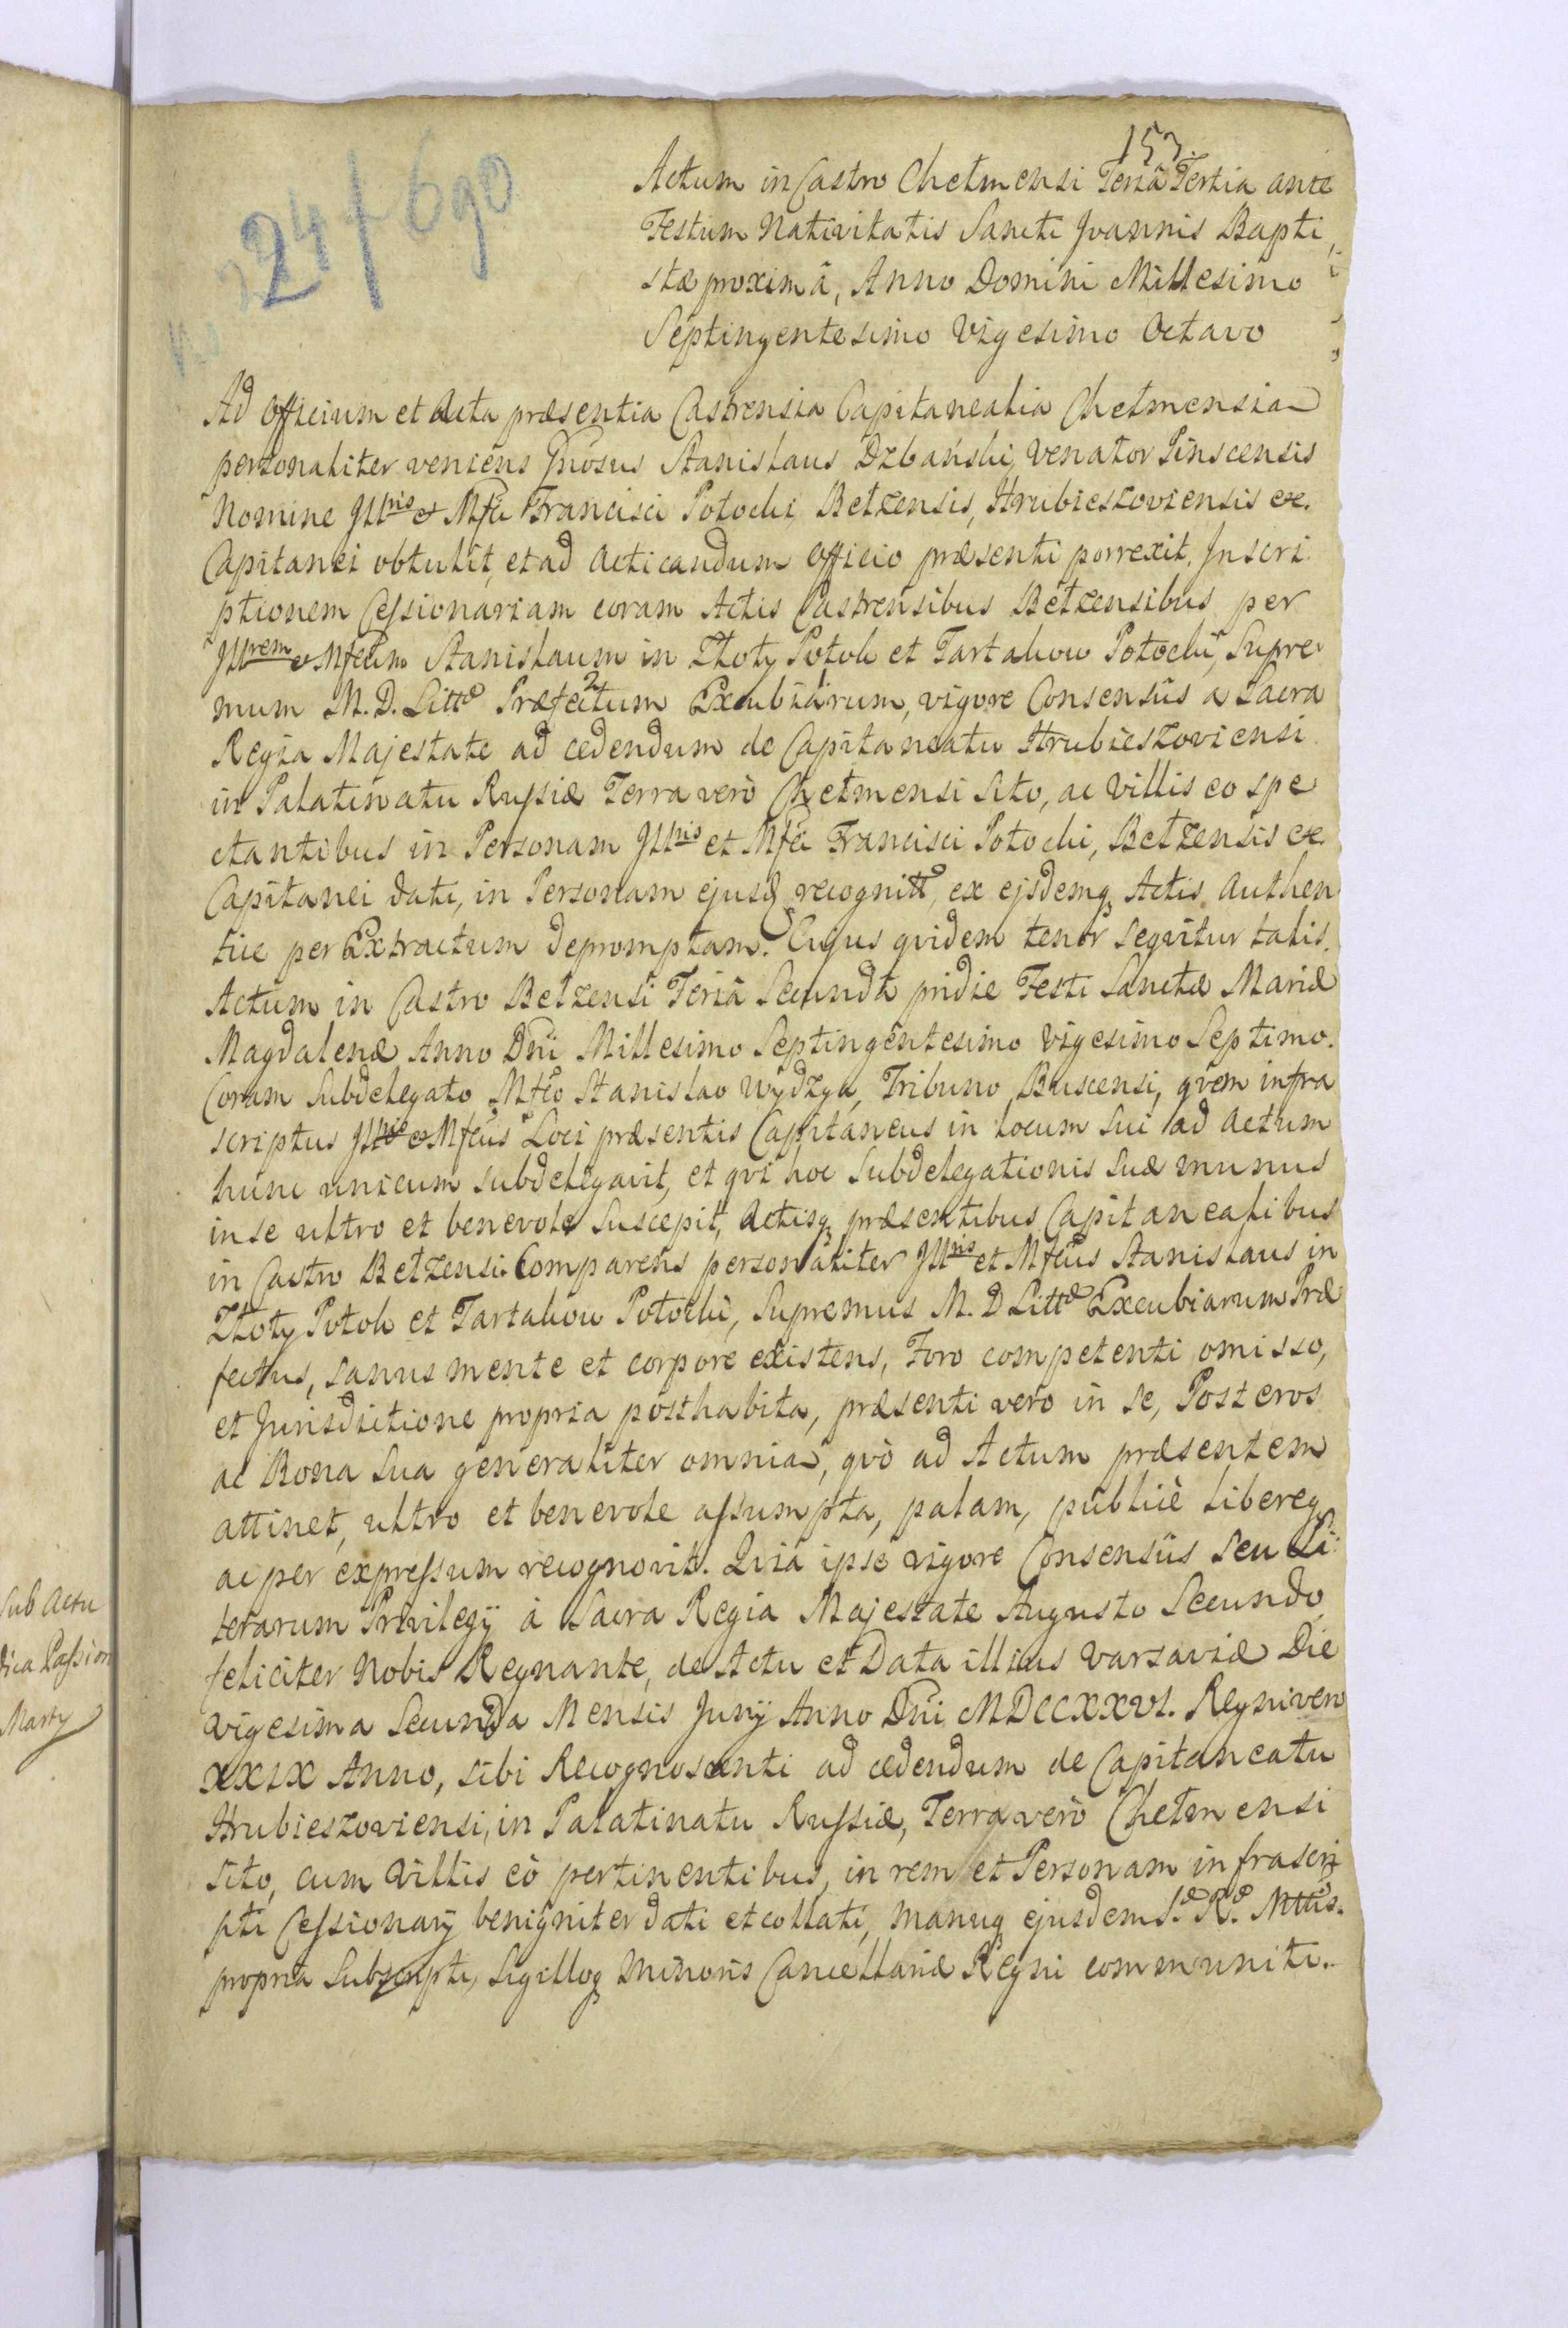 153.
24/690
Actum in Castro Chełmensi Feriâ Tertia ante
Festum Nativitatis Sancti Joannis Bapti,
stæ proximâ, Anno Domini Millesimo
Septingentesimo Vigesimo Octavo
Ad Officium et Acta præsentia Castrensia Capitanealia Chełmensia
personaliter veniens Gnosus Stanislaus Dzbański, Venator Pinscensis
Nomine Illris & Mfci Francisci Potocki, Bełzensis, Hrubieszoviensis &c.
Capitanei obtulit, et ad acticandum Officio præsenti porrexit. Inscri
ptionem Cessionariam coram Actis Castrensibus Bełzensibus per
Illrem & Mfcum Stanislaum in Złoty Potok et Tartakow Potocki, Supre
mum M. D. Littæ Præfectum Excubiarum, vigore Consensûs a Sacra
Regia Majestate ad cedendum de Capitaneatu Hrubieszoviensi
in Palatinatu Russiæ Terra verò Chełmensi Sito, ac Villis eo spe
ctantibus in Personam Illris et Mfci Francisci Potocki, Bełzensis &c.
Capitanei dati, in Personam ejusd recognittæ, ex ejsdemq Actis Authen
tice per Extractum depromptam. Cujus qvidem tenor seqvitur talis.
Actum in Castro Bełzensi Feriâ Secundâ pridie Festi Sanctæ Mariæ
Magdalenæ Anno Dni Millesimo Septingentesimo Vigesimo Septimo.
Coram Subdelegato Mfco Stanislao Wydzga, Tribuno Buscensi, qvem infra
scriptus Illris & Mfcus Loci præsentis Capitaneus in locum sui ad actum
hunc unicum subdelegavit, et qvi hoc Subdelegationis suæ munus
in se ultro et benevole suscepit, Actisq præsentibus Capitanealibus
in Castro Bełzensi Comparens personaliter Illris et Mfcus Stanislaus in
Złoty Potok et Tartakow Potocki, Supremus M. D Littæ Excubiarum Præ
fectus, sanus mente et corpore existens, Foro competenti omisso,
et Jurisdictione propria posthabita, præsenti vero in se, Posteros
ac Bona Sua generaliter omnia, qvò ad Actum præsentem
attinet, ultro et benevole assumpta, palam, publicè libereq
ac per expressum recognovit. Qvia ipse vigore Consensûs seu Li:
terarum Privilegÿ à Sacra Regia Majestate Augusto Secundo
feliciter Nobis Regnante, de Actu et Data illius Varsaviæ Die
Vigesima Secunda Mensis Junÿ Anno Dni MDCCXXVI. Regni vero
XXIX Anno, sibi Recognoscenti ad cedendum de Capitaneatu
Hrubieszoviensi, in Palatinatu Russiæ, Terra verò Chełmensi
sito, cum Villis eò pertinentibus, in rem et Personam infrascri
pti Cessionarÿ benigniter dati et collati, manuq ejusdem S.æ R.æ Mttis.
propria Subscripti, Sigilloq Minoris Cancellariæ Regni communiti.
Sub Actu
dica Passion
Marty